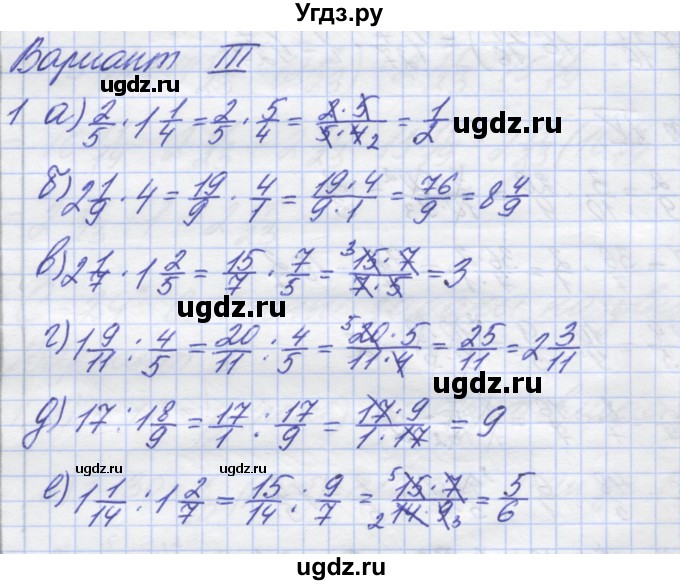 Угдз.ру
Вариант III
ugdz.ru
1 а) 2/5 · 1 1/4 = 2/5 · 5/4 = 2·5/5·4 2 = 1/2
ugdz.ru
ugdz.ru
б) 2 1/9 · 4 = 19/9 · 4/1 = 19·4/9·1 = 76/9 = 8 4/9
в) 2 1/7 · 1 2/5 = 15/7 · 7/5 = 3 15·7/7·5 = 3
ugdz.ru
г) 1 9/11 : 4/5 = 20/11 : 4/5 = 5 20·5/11·4 = 25/11 = 2 3/11
ugdz.ru
д) 17 : 1 8/9 = 17/1 : 17/9 = 17·9/1·17 = 9
ugdz.ru ugdz.ru
е) 1 1/14 : 1 2/7 = 15/14 : 9/7 = 5 15·7/2 14·9 3 = 5/6
ugdz.ru
Угдз.ру